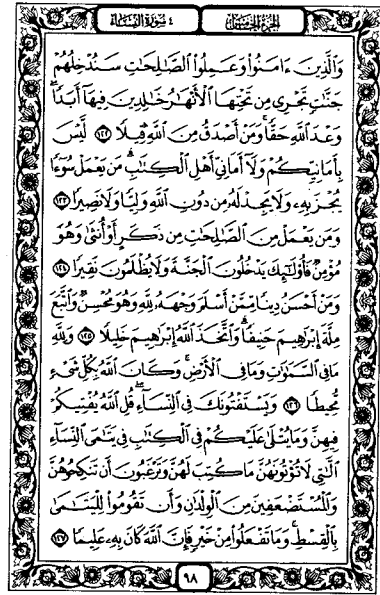 الجزء الخامس
٤ سورة النساء
وَالَّذِينَ ءَامَنُوا۟ وَعَمِلُوا۟ الصَّـٰلِحَـٰتِ سَنُدْخِلُهُمْ
جَنَّـٰتٍ تَجْرِى مِن تَحْتِهَا الْأَنْهَـٰرُ خَـٰلِدِينَ فِيهَآ أَبَدًاۖ
وَعْدَ اللَّهِ حَقًّاۚ وَمَنْ أَصْدَقُ مِنَ اللَّهِ قِيلًا ١٢٢ لَّيْسَ
بِأَمَانِيِّكُمْ وَلَآ أَمَانِىِّ أَهْلِ الْكِتَـٰبِۗ مَن يَعْمَلْ سُوٓءًا
يُجْزَ بِهِۦ وَلَا يَجِدْ لَهُۥ مِن دُونِ اللَّهِ وَلِيًّا وَلَا نَصِيرًا ١٢٣
وَمَن يَعْمَلْ مِنَ الصَّـٰلِحَـٰتِ مِن ذَكَرٍ أَوْ أُنثَىٰ وَهُوَ
مُؤْمِنٌ فَأُو۟لَـٰٓئِكَ يَدْخُلُونَ الْجَنَّةَ وَلَا يُظْلَمُونَ نَقِيرًا ١٢٤
وَمَنْ أَحْسَنُ دِينًا مِّمَّنْ أَسْلَمَ وَجْهَهُۥ لِلَّهِ وَهُوَ مُحْسِنٌ وَاتَّبَعَ
مِلَّةَ إِبْرَٰهِيمَ حَنِيفًاۗ وَاتَّخَذَ اللَّهُ إِبْرَٰهِيمَ خَلِيلًا ١٢٥ وَلِلَّهِ
مَا فِى السَّمَـٰوَٰتِ وَمَا فِى الْأَرْضِۚ وَكَانَ اللَّهُ بِكُلِّ شَىْءٍ
مُّحِيطًا ١٢٦ وَيَسْتَفْتُونَكَ فِى النِّسَآءِۖ قُلِ اللَّهُ يُفْتِيكُمْ
فِيهِنَّ وَمَا يُتْلَىٰ عَلَيْكُمْ فِى الْكِتَـٰبِ فِى يَتَـٰمَى النِّسَآءِ
الَّـٰتِى لَا تُؤْتُونَهُنَّ مَا كُتِبَ لَهُنَّ وَتَرْغَبُونَ أَن تَنكِحُوهُنَّ
وَالْمُسْتَضْعَفِينَ مِنَ الْوِلْدَٰنِ وَأَن تَقُومُوا۟ لِلْيَتَـٰمَىٰ
بِالْقِسْطِۚ وَمَا تَفْعَلُوا۟ مِنْ خَيْرٍ فَإِنَّ اللَّهَ كَانَ بِهِۦ عَلِيمًا ١٢٧
٩٨